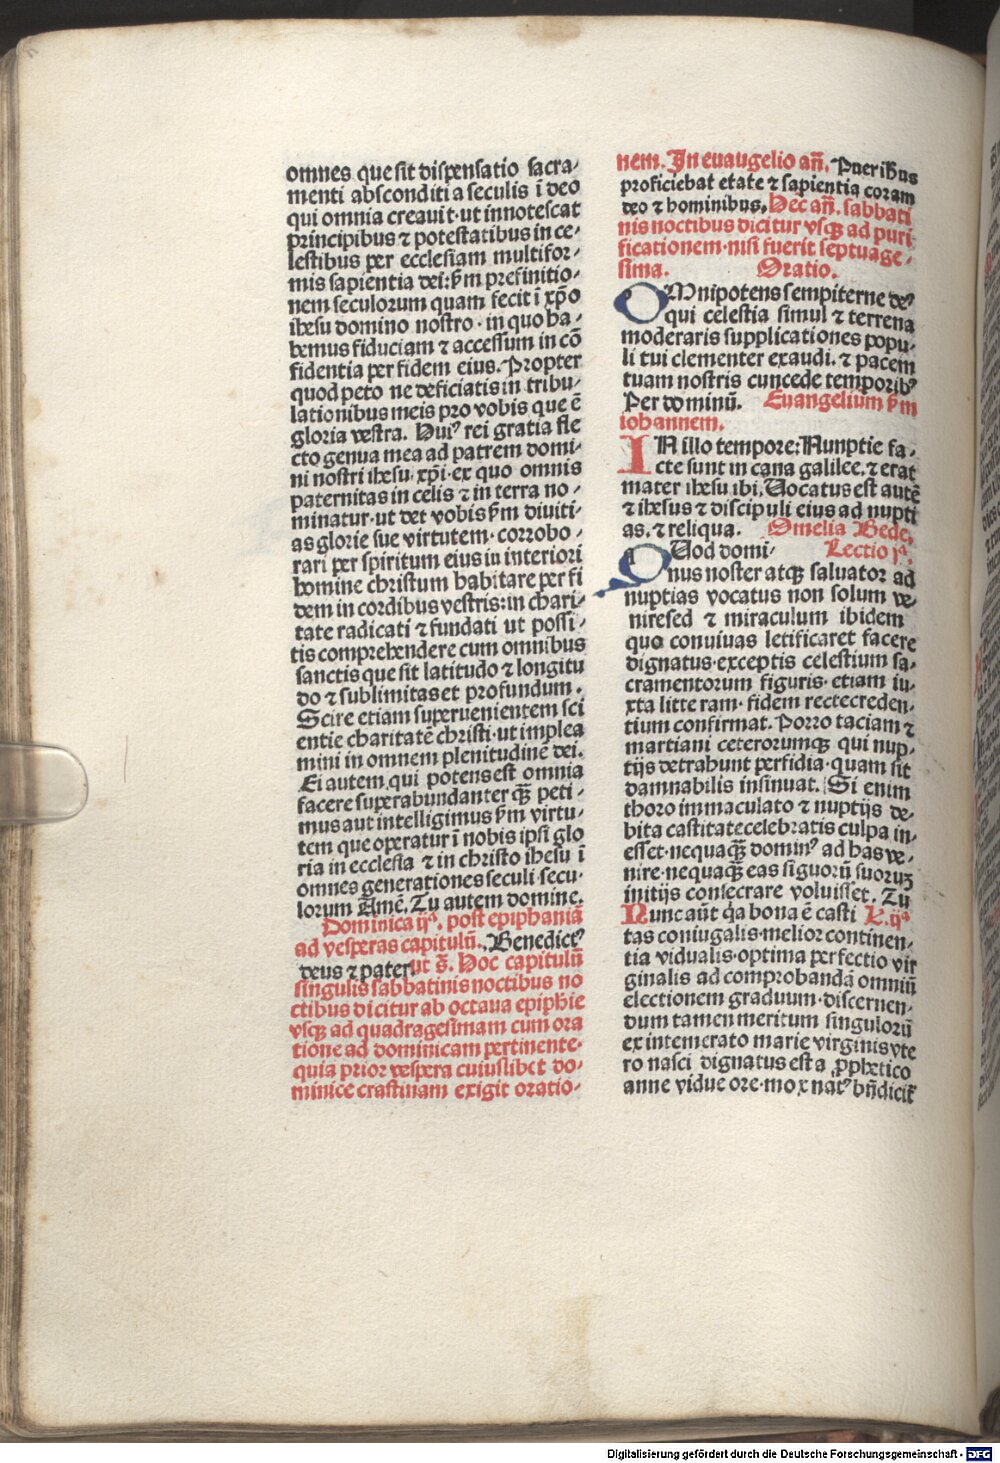 omnes que sit dispensatio sacra-
menti absconditi a seculis ī deo
qui omnia creauit·ut innotescat
principibus ⁊ potestatibus in ce-
lestibus per ecclesiam multifor-
mis sapientia dei:ẜm prefinitio-
nem seculorum quam fecit ī xp̄o
ihesu domino nostro·in quo ha-
bemus fiduciam ⁊ accessum in cō
fidentia per fidem eius. Propter
quod peto ne deficiatis in tribu-
lationibus meis pro vobis que ē
gloria vestra. Huiꝰ rei gratia fle
cto genua mea ad patrem domi-
ni nostri ihesu xp̄i·ex quo omnis
paternitas in celis ⁊ in terra no-
minatur·ut det vobis ẜm diuiti-
as glorie sue virtutem·corrobo-
rari per spiritum eius in interiori
homine christum habitare per fi
dem in cordibus vestris:in chari-
tate radicati ⁊ fundati ut possi-
tis comprehendere cum omnibus
sanctis que sit latitudo ⁊ longitu
do ⁊ sublimitas et profundum.
Scire etiam superuenientem sci
entie charitatē christi·ut implea
mini in omnem plenitudinē dei.
Ei autem qui potens est omnia
facere superabundanter q̄ꝫ peti-
mus aut intelligimus ẜm virtu-
tem que operatur ī nobis ipsi glo
ria in ecclesia ⁊ in christo ihesu ī
omnes generationes seculi secu-
lorum Amē. Tu autem domine.
Dominica ijᵃ. post epiphaniā
ad vesperas capitulū. Benedictꝰ
deus ⁊ pater ut s̄. Hoc capitulū
singulis sabbatinis noctibus no
ctibus dicitur ab octaua epiphīe
vsqꝫ ad quadragesimam cum ora
tione ad dominicam pertinente·
quia prior vespera cuiuslibet do-
minice crastinam exigit oratio-
nem. In euaugelio añ. Pueri Ihus
proficiebat etate ⁊ sapientia coram
deo ⁊ hominibus. Hec añ. sabbati
nis noctibus dicitur vsqꝫ ad puri
ficationem·nisi fuerit septuage-
sima. Oratio.
OMnipotens sempiterne deꝰ
qui celestia simul ⁊ terrena
moderaris supplicationes popu-
li tui clementer exaudi. ⁊ pacem
tuam nostris cuncede temporibꝰ
Per dominū. Euangelium ẜm
iohannem.
IN illo tempore: Nunptie fa-
cte sunt in cana galilee. ⁊ erat
mater ihesu ibi. Vocatus est autē
⁊ ihesus ⁊ discipuli eius ad nupti
as. ⁊ reliqua. Omelia Bede.
QUod domi- Lectio jᵃ.
nus noster atqꝫ saluator ad
nuptias vocatus non solum ve-
niresed ⁊ miraculum ibidem
quo conuiuas letificaret facere
dignatus·exceptis celestium sa-
cramentorum figuris·etiam iu-
xta litteram·fidem rectecreden-
tium confirmat. Porro taciam ⁊
martiani ceterorumqꝫ qui nup-
tijs detrahunt perfidia·quam sit
damnabilis insinuat. Si enim
thoro immaculato ⁊ nuptijs de-
bita castitate celebratis culpa in-
esset·nequaq̄ꝫ dominꝰ ad has ve-
nire·nequaq̄ꝫ eas signorū suoruꝫ
initijs consecrare voluisset. Tu
Nunc aūt q̄a bona ē casti L. ijᵃ
tas coniugalis·melior continen-
tia vidualis·optima perfectio vir
ginalis ad comprobandā omniū
electionem graduum·discernen-
dum tamen meritum singulorū
ex intemerato marie virginis vte
ro nasci dignatus est a ꝓphetico
anne vidue ore·mox natꝰ bn̄dicit̄
Digitalisierung gefördert durch die Deutsche Forschungsgemeinschaft - DFG